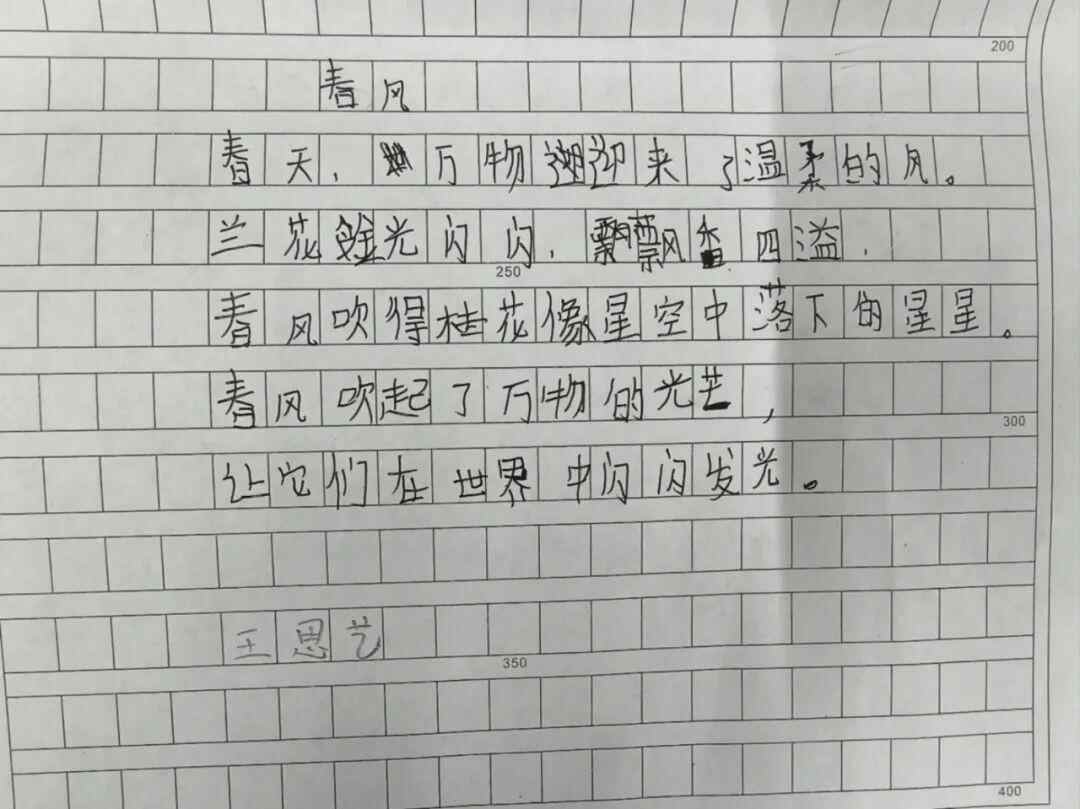 200
春风
春天，万物迎来了温柔的风。
兰花金光闪闪，飘香四溢，
250
春风吹得桂花像星空中落下的星星。
春风吹起了万物的光芒，
300
让它们在世界中闪闪发光。
王思艺
350
400